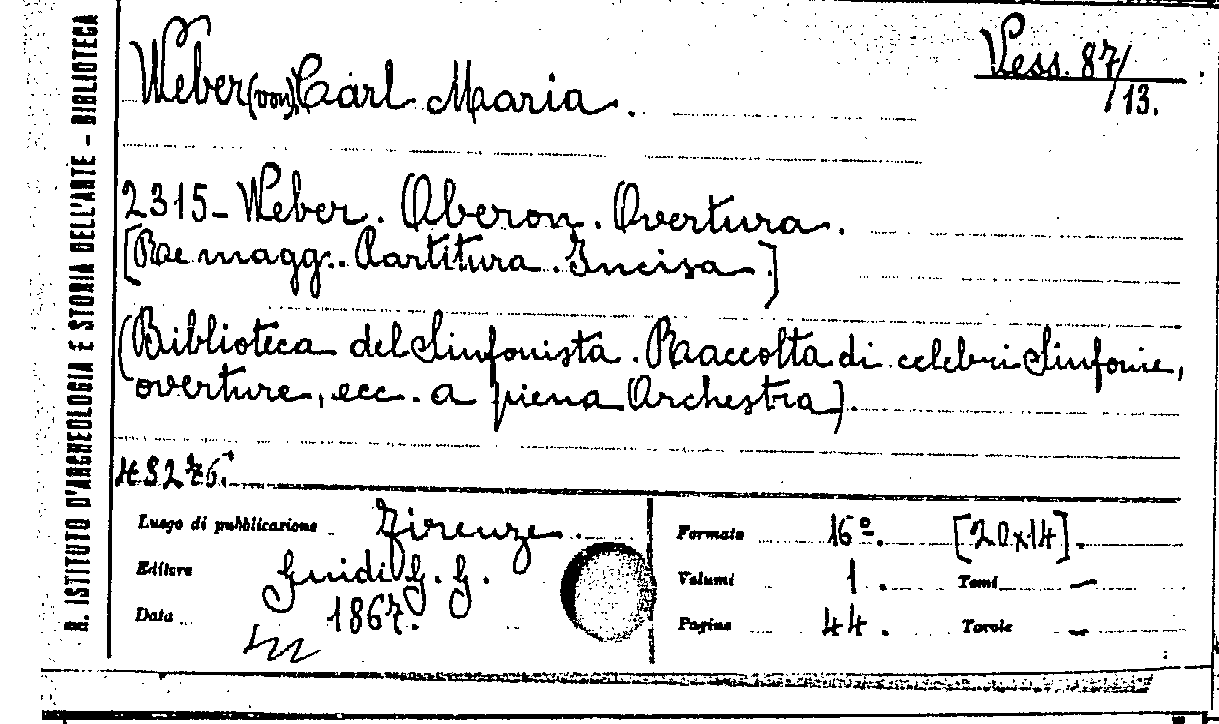 R. ISTITUTO D'ARCHEOLOGIA E STORIA DELL'ARTE – BIBLIOTECA
Weber (von) Carl Maria.
Vess. 87/13.
2315 - Weber. Oberon. Overtura.
[Re magg. Partitura. Incisa.]
(Biblioteca del Sinfonista. Raccolta di celebri Sinfonie,
overture, ecc. a piena Orchestra).
Luogo di pubblicazione Firenze.
Editore Guidi G. G.
Data 1867.
Formato 16º. [20x14].
Volumi 1. Tomi –
Pagine 44. Tavole –